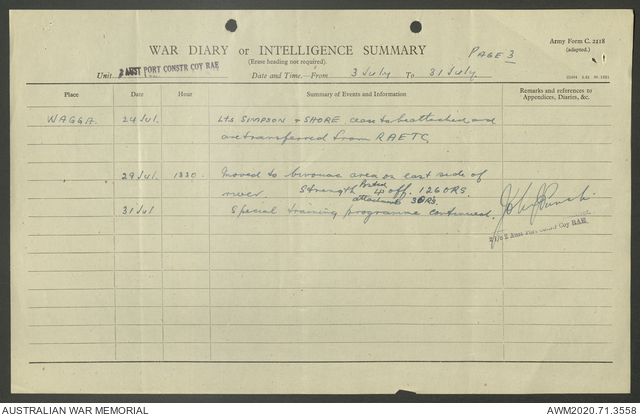 Army Form C. 2118
(adapted.)
PAGE 3
WAR DIARY or INTELLIGENCE SUMMARY
(Erase heading not required).
Unit 2 AUST PORT CONSTR COY RAE Date and Time—From 3 July To 31 July
Place Date Hour Summary of Events and Information Remarks and references to
Appendices, Diaries, &c.
WAGGA. 24 Jul. Lts SIMPSON & SHORE cease to be attached and
are transferred from RAETC
29 Jul. 1330. Moved to bivouac area on east side of
river. Strength Posted 4 off. 126 ORS.
attached 3 ORS.
31 Jul Special training programme continued.
2 Aust Port Constr Coy RAE
AUSTRALIAN WAR MEMORIAL AWM2020.71.3558